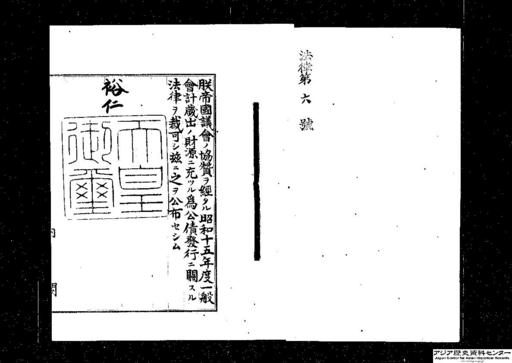 法律第六號
朕帝國議會ノ協贊ヲ經タル昭和十五年度一般
會計歲出ノ財源ニ充ツル爲公債發行ニ關スル
法律ヲ裁可シ玆ニ之ヲ公布セシム
裕仁
天皇
御璽
内
閣
アジア歴史資料センター
Japan Center for Asian Historical Records